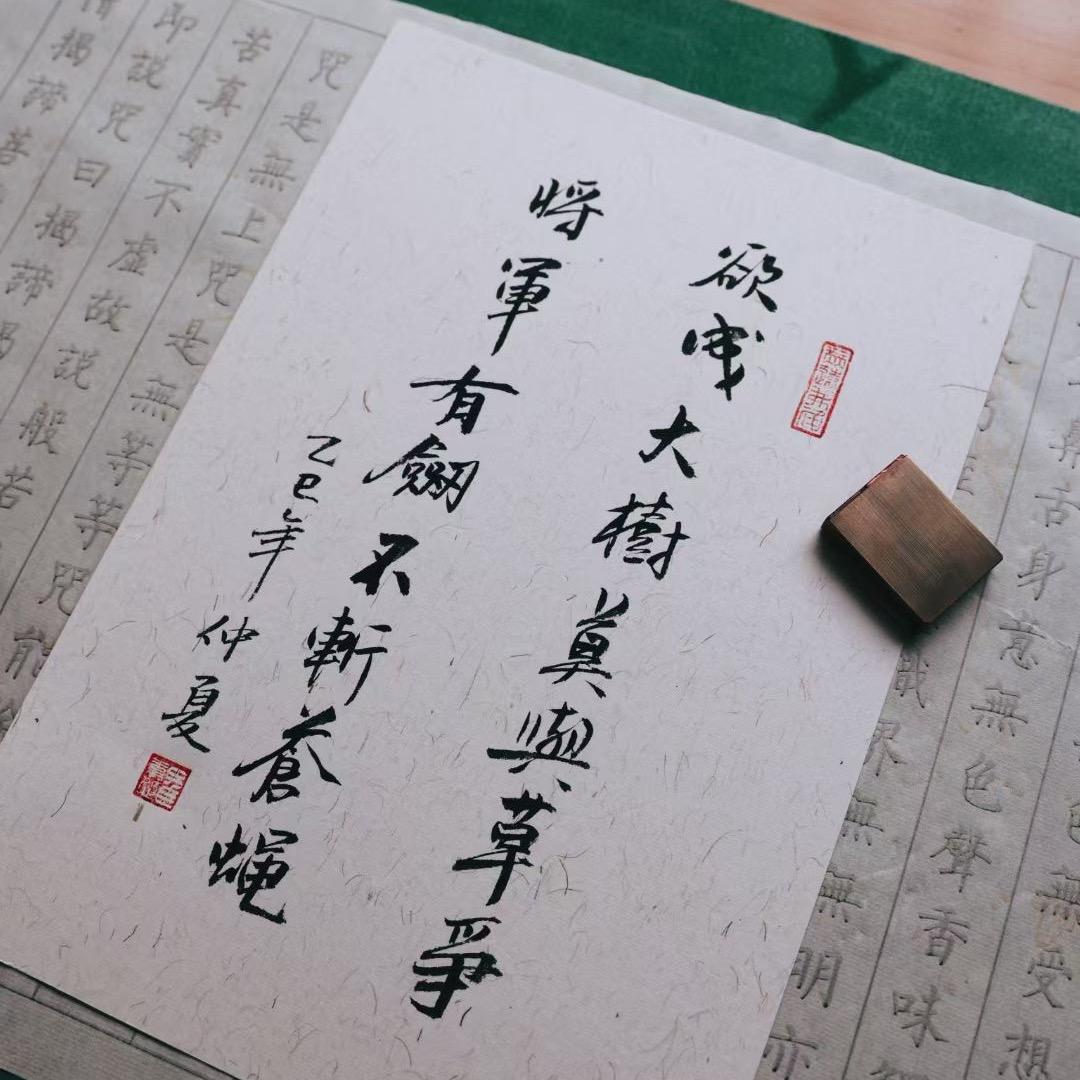 色無受想
鼻舌身意無色聲香味
乃
識界無無明亦
欲成大樹莫與草爭
將軍有劔不斬蒼蠅
乙巳年仲夏
咒是無上咒是無等等咒
苦真實不虛故說般若
即說咒曰揭諦揭
揭諦菩